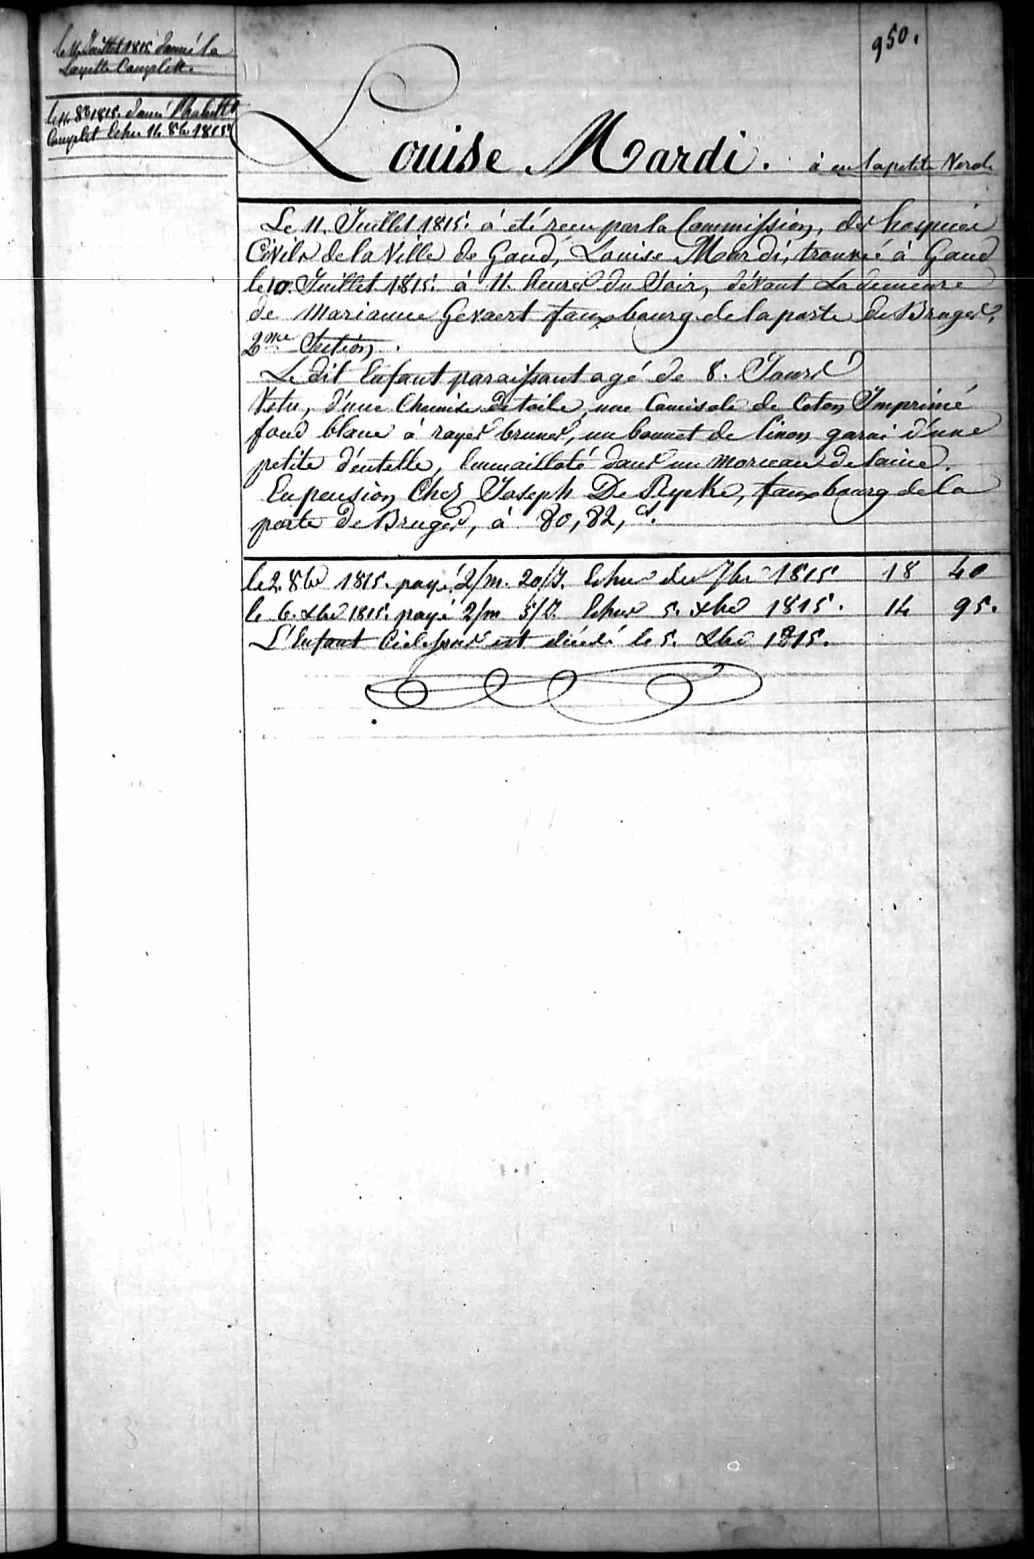 950.
le 11 Juillet 1815 donné la
Layette Complette.
le 14 8bre 1815. donné l'habillt
Complet Echu 14 8bre 1815
Louise Mardi. à eu la petite Verole
Le 11. Juillet 1815. à été recu par la Commission, des hospices
Civils de la Ville de Gand, Louise Mardi, trouvée à Gand
le 10. Juillet 1815. à 11. heures du Soir, devant La demeure
de Marianne Gevaert fauxbourg de la porte de Bruges,
2me Section.
Le dit Enfant paraissant agé de 8. Jours
Vetu, d'une Chemise de toile, une Camisole de Coton Imprimé
fond blanc à rayes brunes, un bonnet de linon garni d'une
petite d'entelle, Emmailloté dans un morceau de laine.
En pension Chez Joseph De Rycke, fauxbourg de la
porte de Bruges, à 80, 82, Ct.
le 2. 8bre 1815. payé 2/m. 20/J. Echus der 7bre 1815 18 40
le 6. xbre 1815. payé 2/m 5/J. Echus 5. xbre 1815. 14 95.
L'Enfant Cidessus est décédé le 5. Xbre 1815.